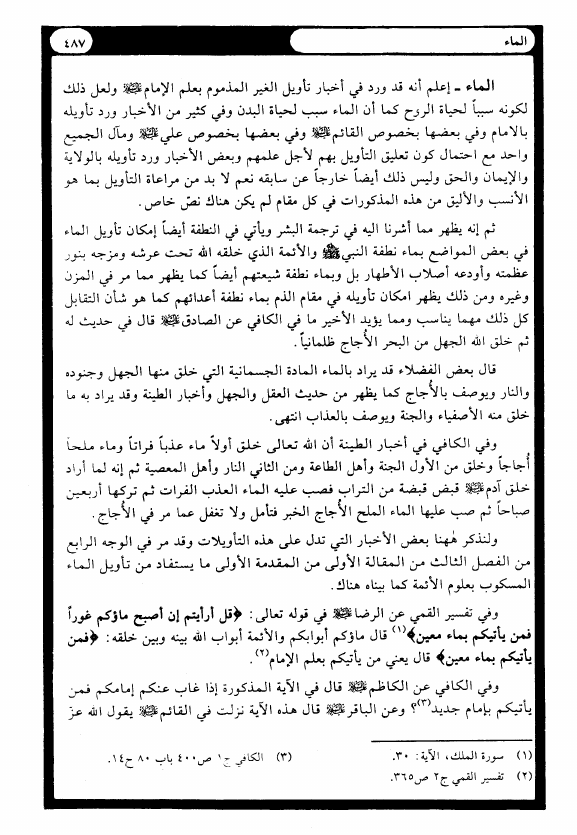 الماء
٤٨٧
الماء ـ إعلم أنه قد ورد في أخبار تأويل الغير المذموم بعلم الإمام ﷺ ولعل ذلك
لكونه سبباً لحياة الروح كما أن الماء سبب لحياة البدن وفي كثير من الأخبار ورد تأويله
بالامام وفي بعضها بخصوص القائم ﷺ وفي بعضها بخصوص علي ﷺ ومآل الجميع
واحد مع احتمال كون تعليق التأويل بهم لأجل علمهم وبعض الأخبار ورد تأويله بالولاية
والإيمان والحق وليس ذلك أيضاً خارجاً عن سابقه نعم لا بد من مراعاة التأويل بما هو
الأنسب والأليق من هذه المذكورات في كل مقام لم يكن هناك نصّ خاص.
ثم إنه يظهر مما أشرنا اليه في ترجمة البشر ويأتي في النطفة أيضاً إمكان تأويل الماء
في بعض المواضع بماء نطفة النبي ﷺ والأئمة الذي خلقه الله تحت عرشه ومزجه بنور
عظمته وأودعه أصلاب الأطهار بل وبماء نطفة شيعتهم أيضاً كما يظهر مما مر في المزن
وغيره ومن ذلك يظهر امكان تأويله في مقام الذم بماء نطفة أعدائهم كما هو شأن التقابل
كل ذلك مهما يناسب ومما يؤيد الأخير ما في الكافي عن الصادق ﷺ قال في حديث له
ثم خلق الله الجهل من البحر الأُجاج ظلمانياً.
قال بعض الفضلاء قد يراد بالماء المادة الجسمانية التي خلق منها الجهل وجنوده
والنار ويوصف بالأُجاج كما يظهر من حديث العقل والجهل وأخبار الطينة وقد يراد به ما
خلق منه الأصفياء والجنة ويوصف بالعذاب انتهى.
وفي الكافي في أخبار الطينة أن الله تعالى خلق أولاً ماء عذباً فراتاً وماء ملحاً
أُجاجاً وخلق من الأول الجنة وأهل الطاعة ومن الثاني النار وأهل المعصية ثم إنه لما أراد
خلق آدم ﷺ قبض قبضة من التراب فصب عليه الماء العذب الفرات ثم تركها أربعين
صباحاً ثم صب عليها الماء الملح الأُجاج الخبر فتأمل ولا تغفل عما مر في الأُجاج.
ولنذكر هٰهنا بعض الأخبار التي تدل على هذه التأويلات وقد مر في الوجه الرابع
من الفصل الثالث من المقالة الأولى من المقدمة الأولى ما يستفاد من تأويل الماء
المسكوب بعلوم الأئمة كما بيناه هناك.
وفي تفسير القمي عن الرضا ﷺ في قوله تعالى: ﴿قل أرأيتم إن أصبح ماؤكم غوراً
فمن يأتيكم بماء معين﴾(١) قال ماؤكم أبوابكم والأئمة أبواب الله بينه وبين خلقه: ﴿فمن
يأتيكم بماء معين﴾ قال يعني من يأتيكم بعلم الإمام(٢).
وفي الكافي عن الكاظم ﷺ قال في الآية المذكورة إذا غاب عنكم إمامكم فمن
يأتيكم بإمام جديد(٣)؟ وعن الباقر ﷺ قال هذه الآية نزلت في القائم ﷺ يقول الله عزّ
(١) سورة الملك، الآية: ٣٠.
(٢) تفسير القمي ج٢ ص٣٦٥.
(٣) الكافي ج١ ص٤٠٠ باب ٨٠ ح١٤.